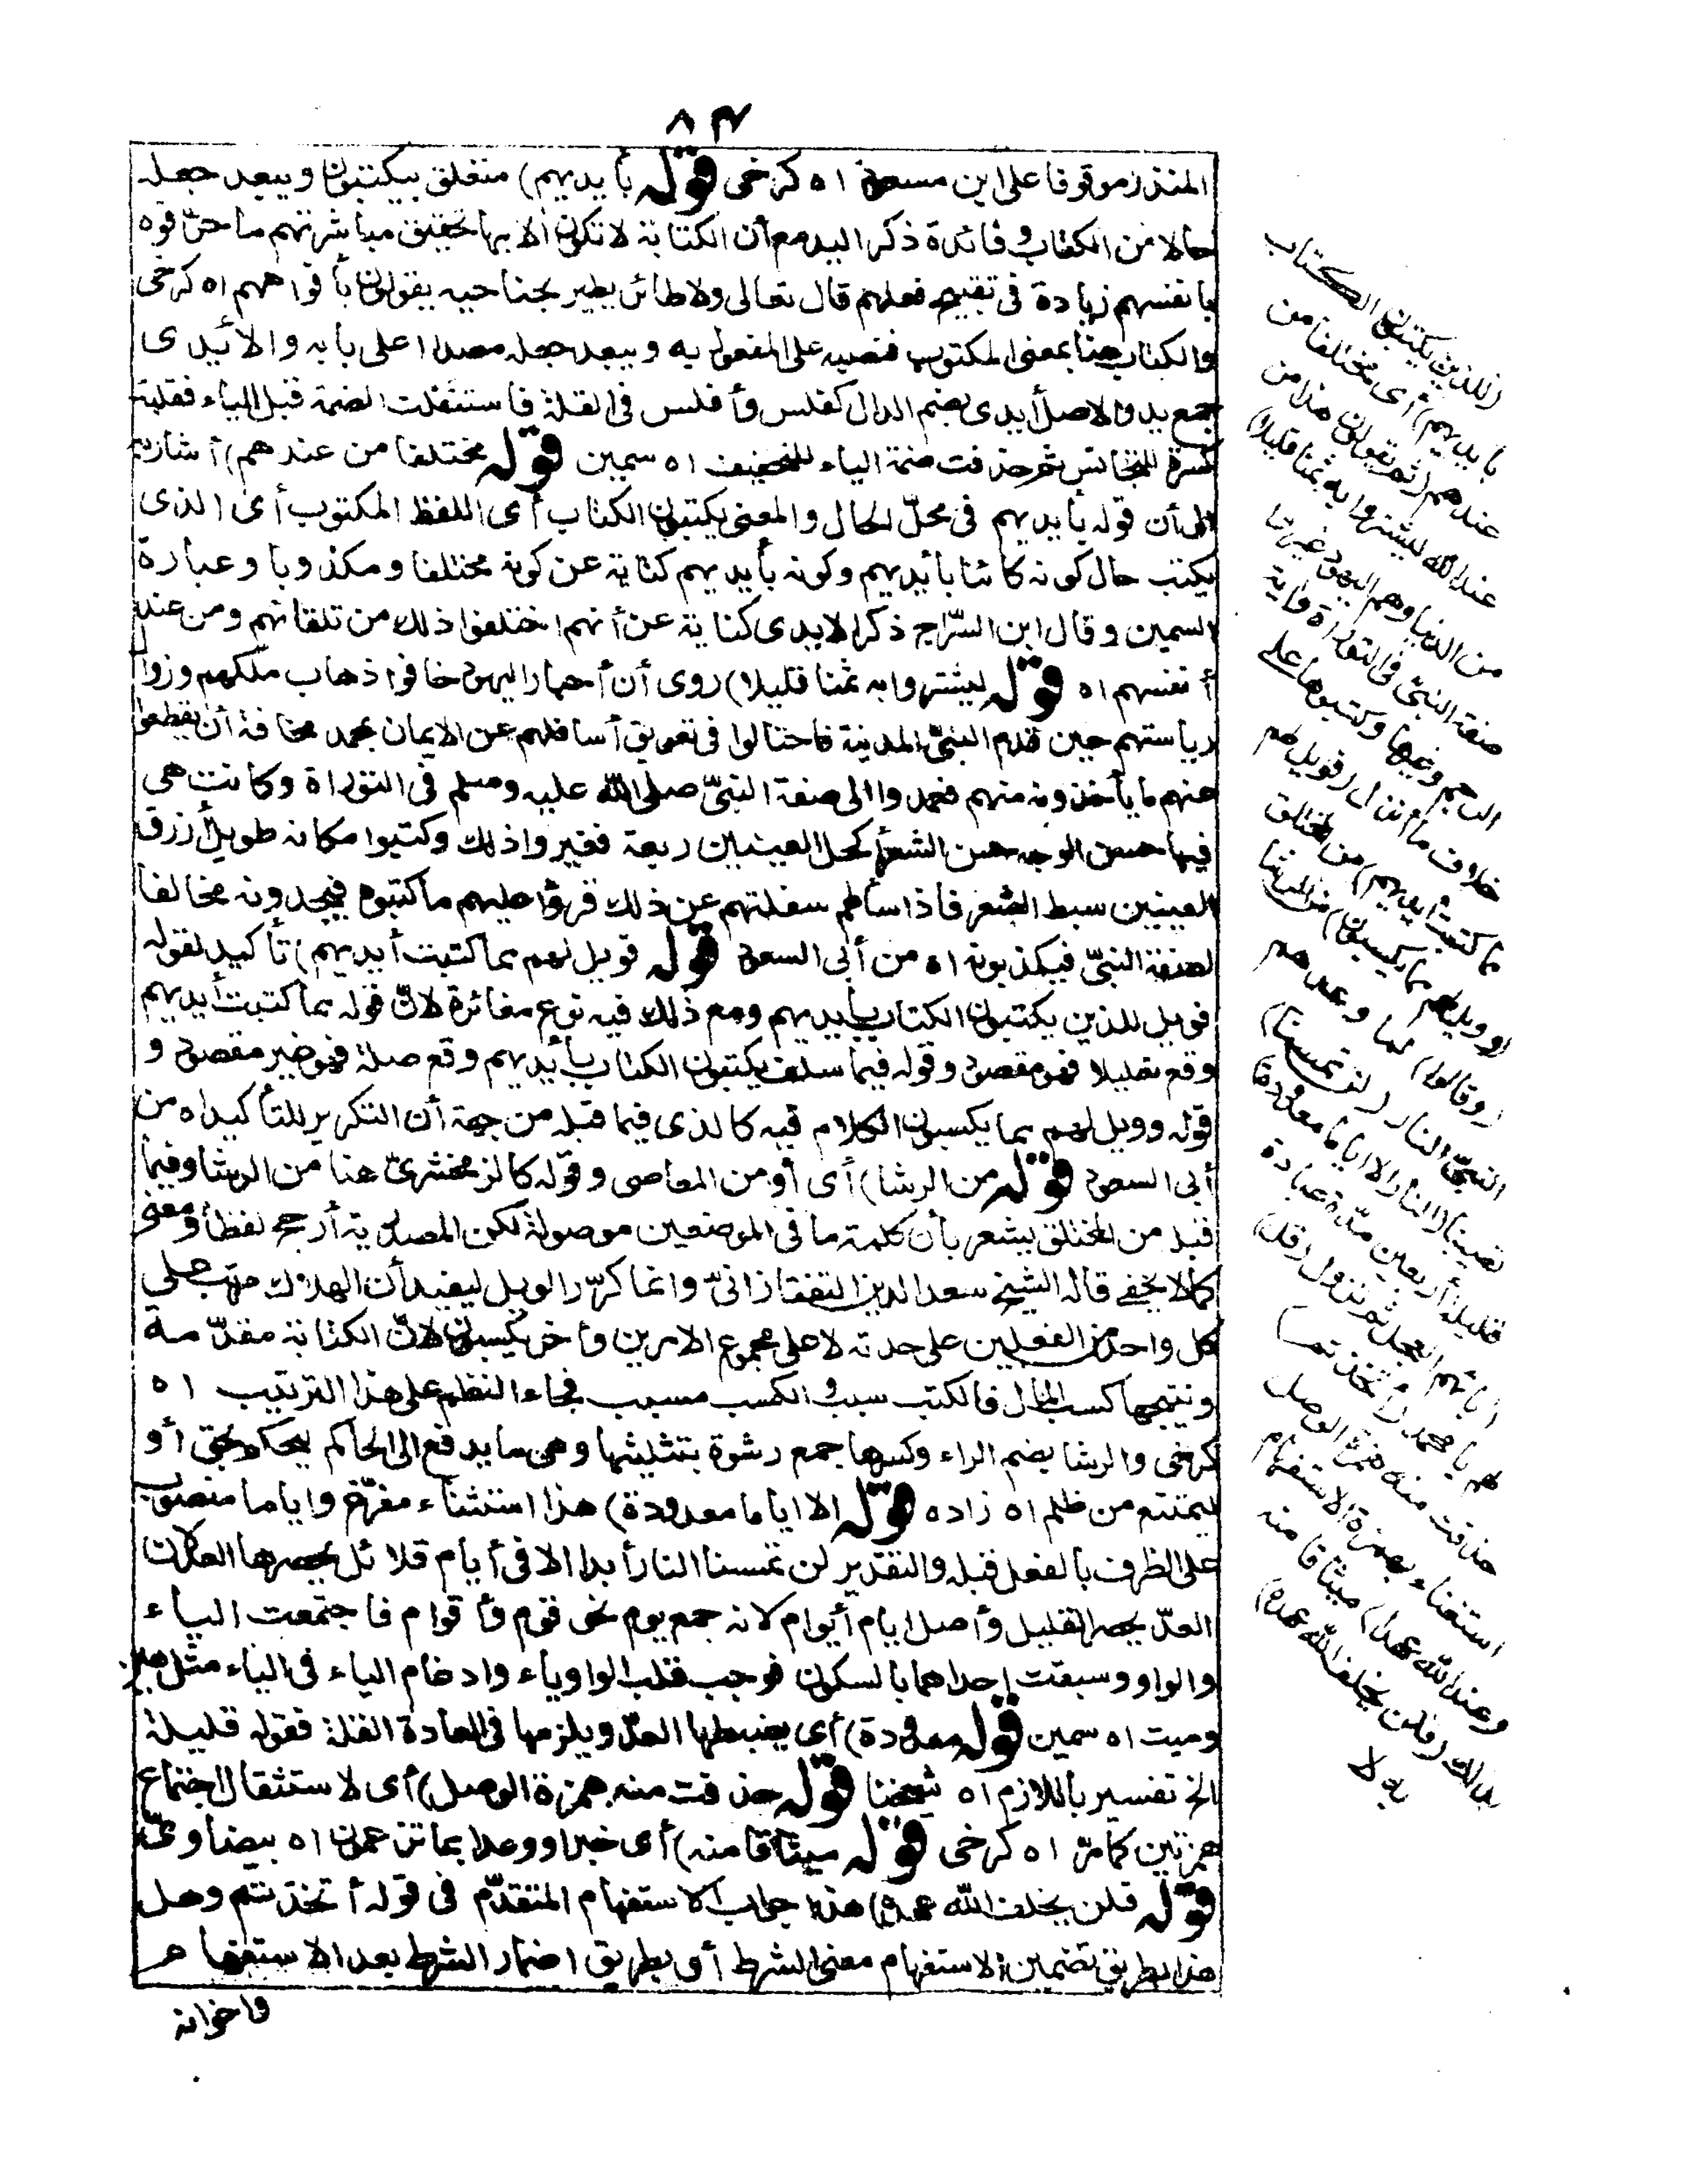 ٨٣
المنذر موقوفا على ابن مسعود اه كرخى قوله بأيديهم) متعلق بيكتبون ويبعد جعله
حالا من الكتاب وفائدة ذكر اليد مع أن الكتابة لا تكون الا بها تحقيق مباشرتهم ما حرّفوه
بانفسهم زيادة فى تقبيح فعلهم قال تعالى ولا طائر يطير بجناحيه يقولون بأفواههم اه كرخى
والكتاب هنا بمعنى المكتوب فنصبه على المفعول به ويبعد جعله مصدرا على بابه والأيدى
جمع يد والاصل أيدى بضم الدال كفلس وأفلس فى القلة فاستثقلت الضمة قبل الياء فقلبت
كسرة للتجانس ثم حذفت ضمة الياء للتخفيف اه سمين قوله مختلقا من عندهم) أشار به
الى أن قوله بأيديهم فى محلّ الحال والمعنى يكتبون الكتاب أى اللفظ المكتوب أى الذى
يكتب حال كونه كائنا بأيديهم وكونه بأيديهم كناية عن كونه مختلقا ومكذوبا وعبارة
السمين وقال ابن السرّاج ذكر الايدى كناية عن أنهم اختلقوا ذلك من تلقائهم ومن عند
أنفسهم اه قوله ليشتروا به ثمنا قليلا) روى أن أحبار اليهود خافوا ذهاب ملكهم وزوال
رياستهم حين قدم النبىّ المدينة فاحتالوا فى تعويق أسافلهم عن الايمان بمحمد مخافة أن يقطعوا
عنهم ما يأخذونه منهم فعمدوا الى صفة النبىّ صلى الله عليه وسلم فى التوراة وكانت هى
فيها حسن الوجه حسن الشعر أكحل العينين ربعة فغيروا ذلك وكتبوا مكانه طويل أزرق
العينين سبط الشعر فاذا سألهم سفلتهم عن ذلك قرؤا عليهم ما كتبوه فيجدونه مخالفا
لصفة النبىّ فيكذبونه اه من أبى السعود قوله فويل لهم مما كتبت أيديهم) تأكيد لقوله
فويل للذين يكتبون الكتاب بأيديهم ومع ذلك فيه نوع مغائرة لانّ قوله مما كتبت أيديهم
وقع تعليلا فهو مقصود وقوله فيما سلف يكتبون الكتاب بأيديهم وقع صلة فهو غير مقصود و
قوله وويل لهم مما يكسبون الكلام فيه كالذى فيما قبله من جهة أن التكرير للتأكيد اه من
أبى السعود قوله من الرشا) أى أو من المعاصى وقوله كالزمخشرىّ هنا من الرشا وفيما
قبله من المختلق يشعر بأن كلمة ما فى الموضعين موصولة لكن المصدرية أرجح لفظا ومعنى
كما لا يخفى قاله الشيخ سعد الدين التفتازانىّ وانما كرّر الويل ليفيد أن الهلاك مرتب على
كل واحد من الفعلين على حدته لا على مجموع الامرين وأخر يكسبون لانّ الكتابة مقدّمة
ونتيجتها كسب المال فالكتب سبب والكسب مسبب فجاء النظم على هذا الترتيب اه
كرخى والرشا بضم الراء وكسرها جمع رشوة بتثليثها وهى ما يدفع الى الحاكم ليحكم بحق أو
ليمتنع من ظلم اه زاده قوله الا اياما معدودة) هذا استثناء مفرّغ واياما منصوب
على الظرف بالفعل قبله والتقدير لن تمسنا النار أبدا الا فى أيام قلائل يحصرها العدّ لان
العدّ يحصر القليل وأصل ايام أيوام لانه جمع يوم نحو قوم وأقوام فاجتمعت الياء
والواو وسبقت احداهما بالسكون فوجب قلب الواو ياء وادغام الياء فى الياء مثل هين
وميت اه سمين قوله معدودة) أى يضبطها العدّ ويلزمها فى العادة القلة فقوله قليلة
الخ تفسير باللازم اه شيخنا قوله حذفت منه همزة الوصل) أى لاستثقال اجتماع
همزتين كما مرّ اه كرخى قوله ميثاقا منه) أى خبرا ووعدا بما تزعمون اه بيضاوىّ
قوله فلن يخلف الله عهده) هذا جواب الاستفهام المتقدّم فى قوله أتخذتم وهل
هذا بطريق تضمين الاستفهام معنى الشرط أو بطريق اضمار الشرط بعد الاستفهام
واخوانه
(للذين يكتبون الكتاب
بأيديهم) أى مختلقا من
عندهم (ثم يقولون هذا من
عند الله ليشتروا به ثمنا قليلا)
من الدنيا وهم اليهود غيروا
صفة النبىّ فى التوراة وآية
الرجم وغيرها وكتبوها على
خلاف ما أنزل (فويل لهم
مما كتبت أيديهم) من المختلق
(وويل لهم مما يكسبون) من الرشا
(وقالوا) لما وعدهم
النبىّ النار (لن تمسنا)
تصيبنا (النار الا اياما معدودة)
قليلة أربعين مدّة عبادة
ابائهم العجل ثم تزول (قل)
لهم يا محمد (أتخذتم)
حذفت منه همزة الوصل
استغناء بهمزة الاستفهام
(عند الله عهدا) ميثاقا منه
بذلك (فلن يخلف الله عهده)
به لا